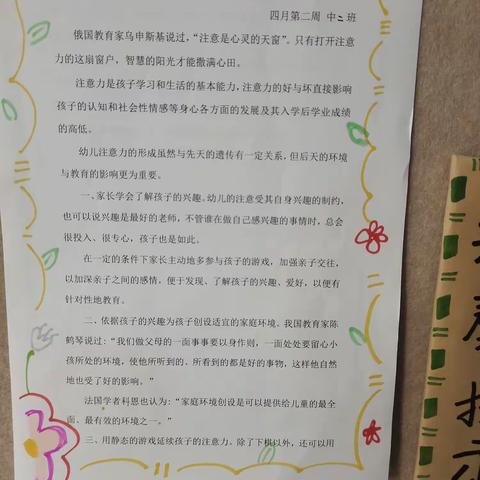 四月第二周 中二班
俄国教育家乌申斯基说过，“注意是心灵的天窗”。只有打开注意
力的这扇窗户，智慧的阳光才能撒满心田。
注意力是孩子学习和生活的基本能力，注意力的好与坏直接影响
孩子的认知和社会性情感等身心各方面的发展及其入学后学业成绩
的高低。
幼儿注意力的形成虽然与先天的遗传有一定关系，但后天的环境
与教育的影响更为重要。
一、家长学会了解孩子的兴趣。幼儿的注意受其自身兴趣的制约，
也可以说兴趣是最好的老师，不管谁在做自己感兴趣的事情时，总会
很投入、很专心，孩子也是如此。
在一定的条件下家长主动地多参与孩子的游戏，加强亲子交往，
以加深亲子之间的感情，便于发现、了解孩子的兴趣、爱好，以便有
针对性地教育。
二、依据孩子的兴趣为孩子创设适宜的家庭环境。我国教育家陈
鹤琴说过：“我们做父母的一面事事要以身作则，一面处处要留心小
孩所处的环境，使他所听到的、所看到的都是好的事物，这样他自然
地也受了好的影响。”
法国学者科恩也认为：“家庭环境创设是可以提供给儿童的最全
面、最有效的环境之一。”
三、用静态的游戏延续孩子的注意力。除了下棋以外，还可以用